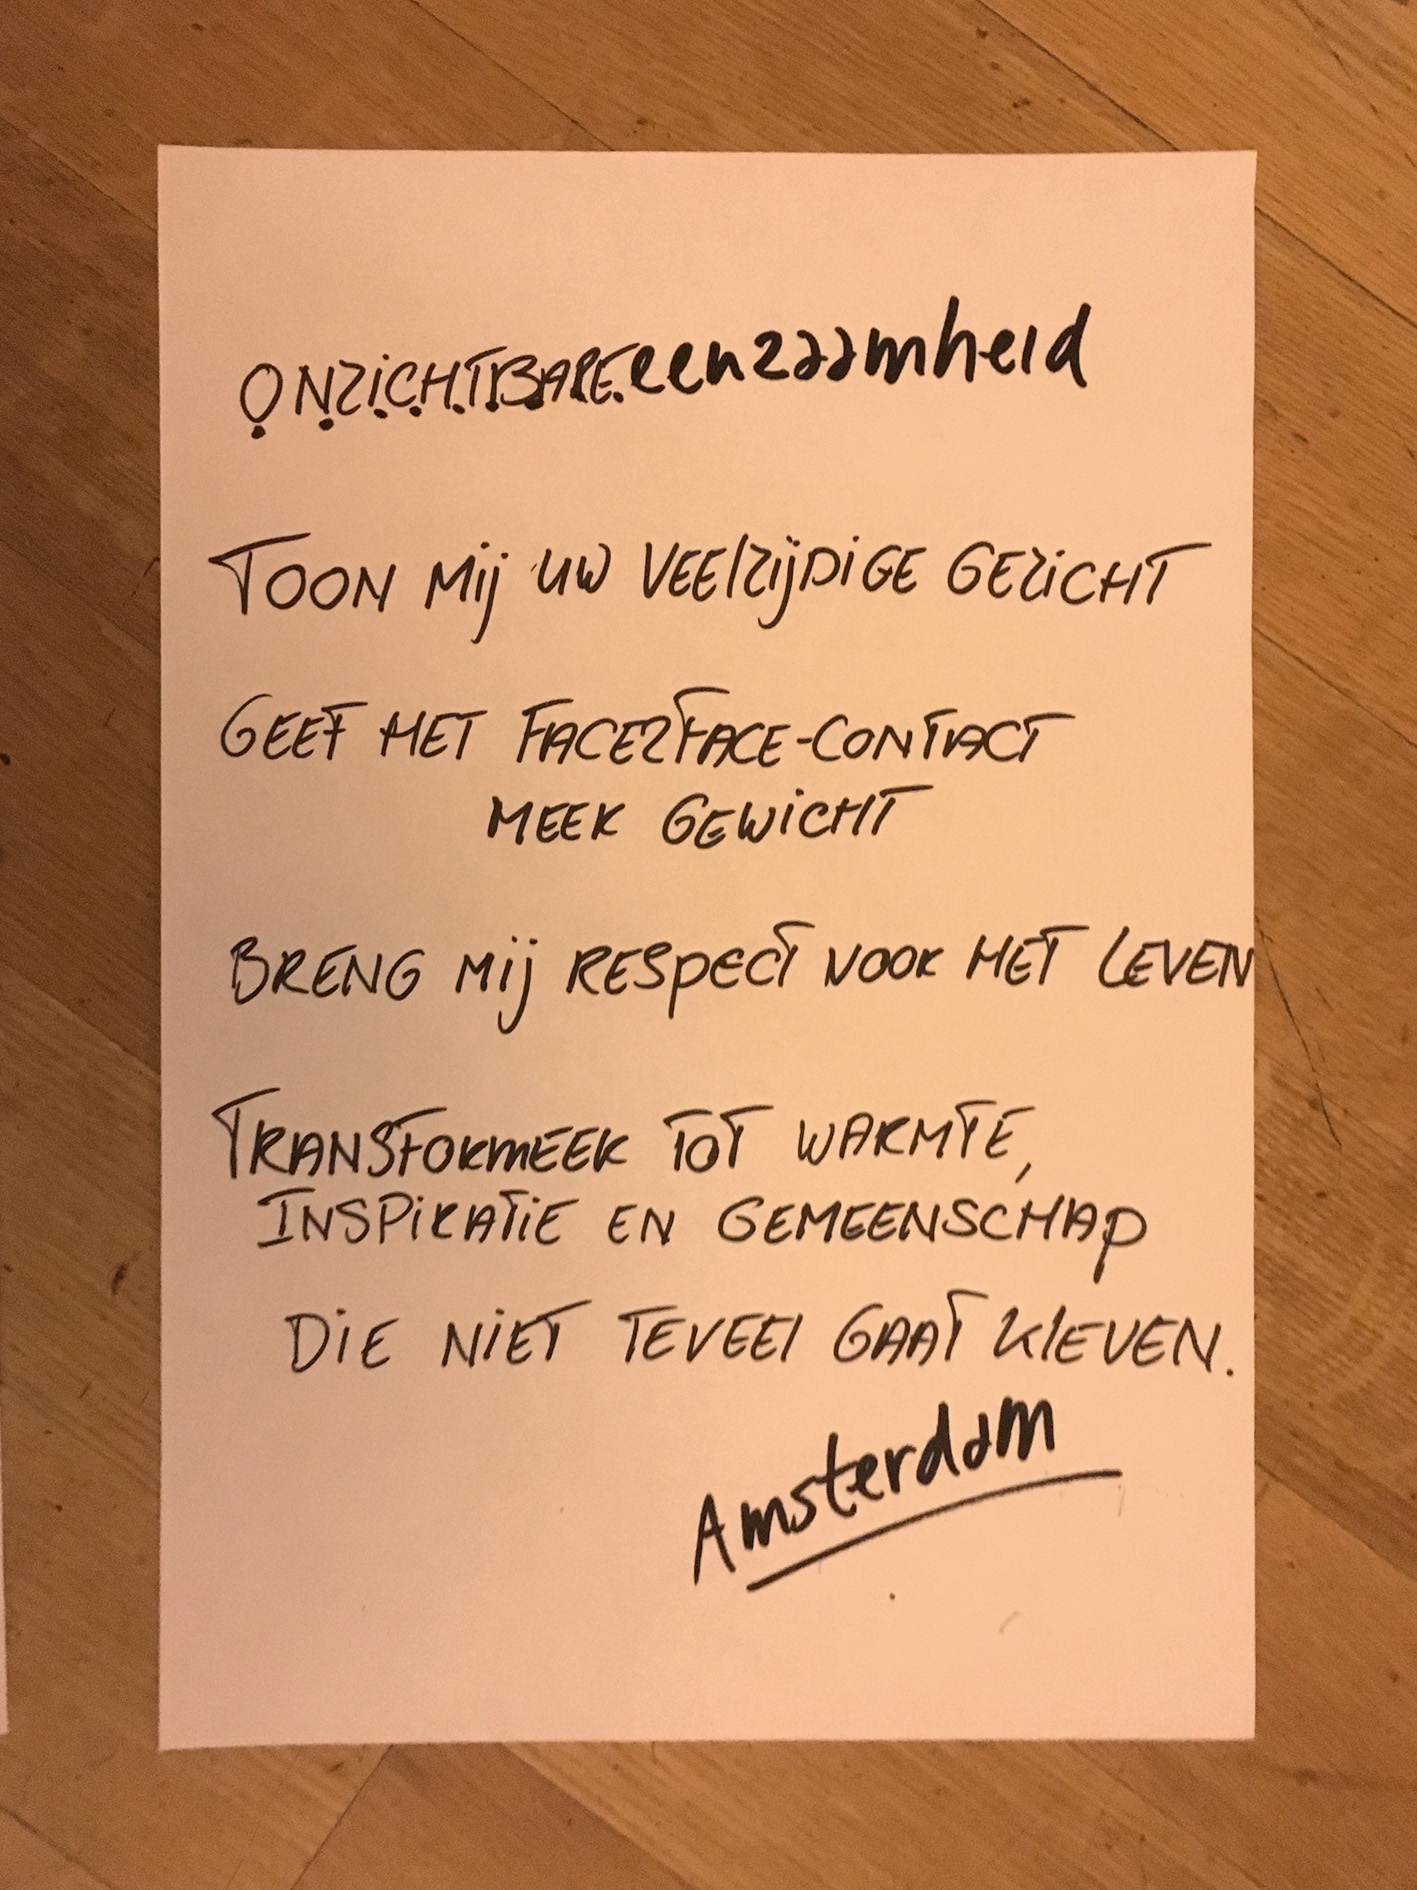 ONZICHTBARE eenzaamheid
TOON Mij UW VEElZijDiGE GEZiCHT
GEEF HET FACE2FACE-CONTACT
MEER GEWiCHT
BRENG Mij RESpECT VOOR HET LEVEN
TRANSFORmEER TOT WARMTE,
INSPiRATiE EN GEMEENSCHAp
DiE NiET TEVEEl GAAT KlEVEN.
Amsterdam